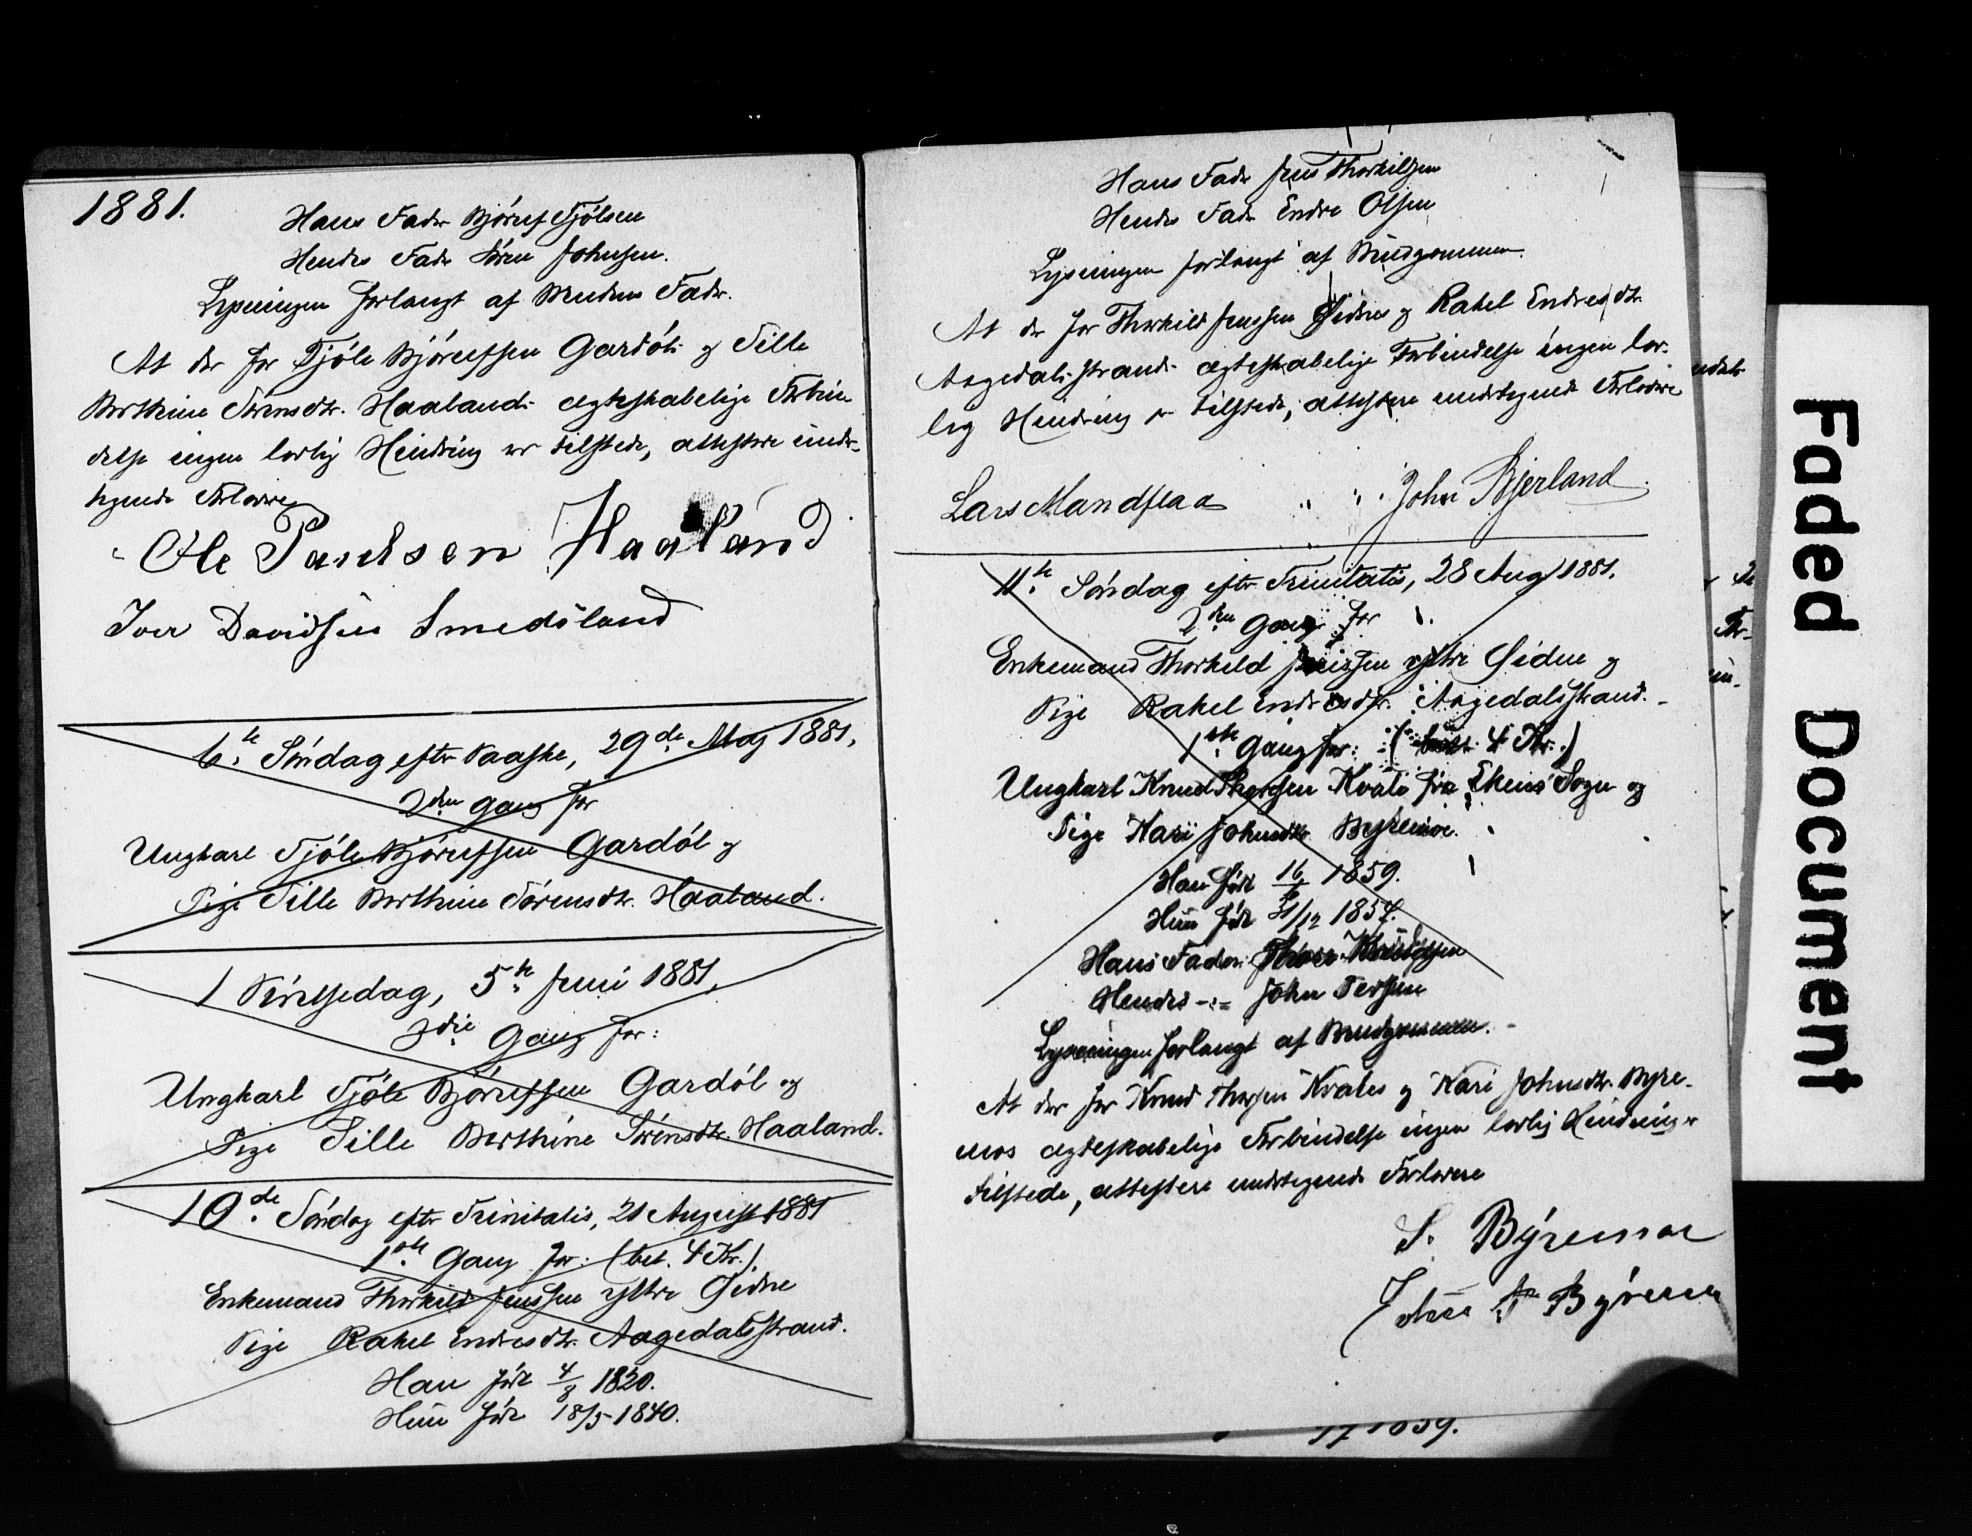 1881.
Hans Fader Bjørulf Fjølsen
Hendes Fader Sören Johnsen.
Lysningen forlangt af Brudens Fader.
At der for Tjöls Bjørulfsen Gardöls og Sille
Berthine Sörensdtr. Haalands ægteskabelige Forbin
delse ingen lovlig Hindring er tilstede, attestere under-
tegnede Forlovere
Ole Haaland
Iver Davidsen Smedsland
6te Söndag efter Paaske, 29de Maj 1881,
2den Gang for
Ungkarl Tjöls Bjørulfsen Gardöl og
Pige Sille Berthine Sörensdtr. Haaland.
1 Pintsedag, 5te Juni 1881,
3die Gang for:
Ungkarl Tjöls Bjørulfsen Gardöl og
Pige Sille Berthine Sörensdtr. Haaland.
10de Söndag efter Trinitatis, 21 August 1881
1ste Gang for: (bet. 4 Kr.)
Enkemand Thorkild Jenssen yttre Øidne
Pige Rakel Endresdtr. Aagedalsstrand.
Han född 4/8 1820.
Hun född 18/5 1840.
Hans Fader Jens Thorkildsen
Hendes Fader Endre Olsen
Lysningen forlangt af Brudgommen.
At der for Thorkild Jenssen Øidnes og Rakel Endresdtr.
Aagedalsstrands ægteskabelige Forbindelse ingen lov-
lig Hindring er tilstede, attestere undertegnede Forlovere
Lars Mandflaa " " John Bjerland.
11te Söndag efter Trinitatis, 28 Aug 1881.
2den Gang for
Enkemand Thorkild Jenssen yttre Øidne og
Pige Rakel Endresdtr. Aagedalsstrand.
1ste Gang for: (betalt 4 Kr.)
Ungkarl Knud Thorsen Kvals fra Ekens Sogn og
Pige Kari Johnsdtr. Byremoe.
Han född 16/6 1859.
Hun född 31/12 1857.
Hans Fader: Thore
Hendes -:- John Tersen
Lysningen forlangt af Brudgommen.
At der for Knud Thorsen Kvales og Kari Johnsdtr. Byre-
mos ægteskabelige Forbindelse ingen lovlig Hindring er
tilstede, attestere undertegnede Forlovere
S. Byremoe
Byremo
1859.
Faded Document